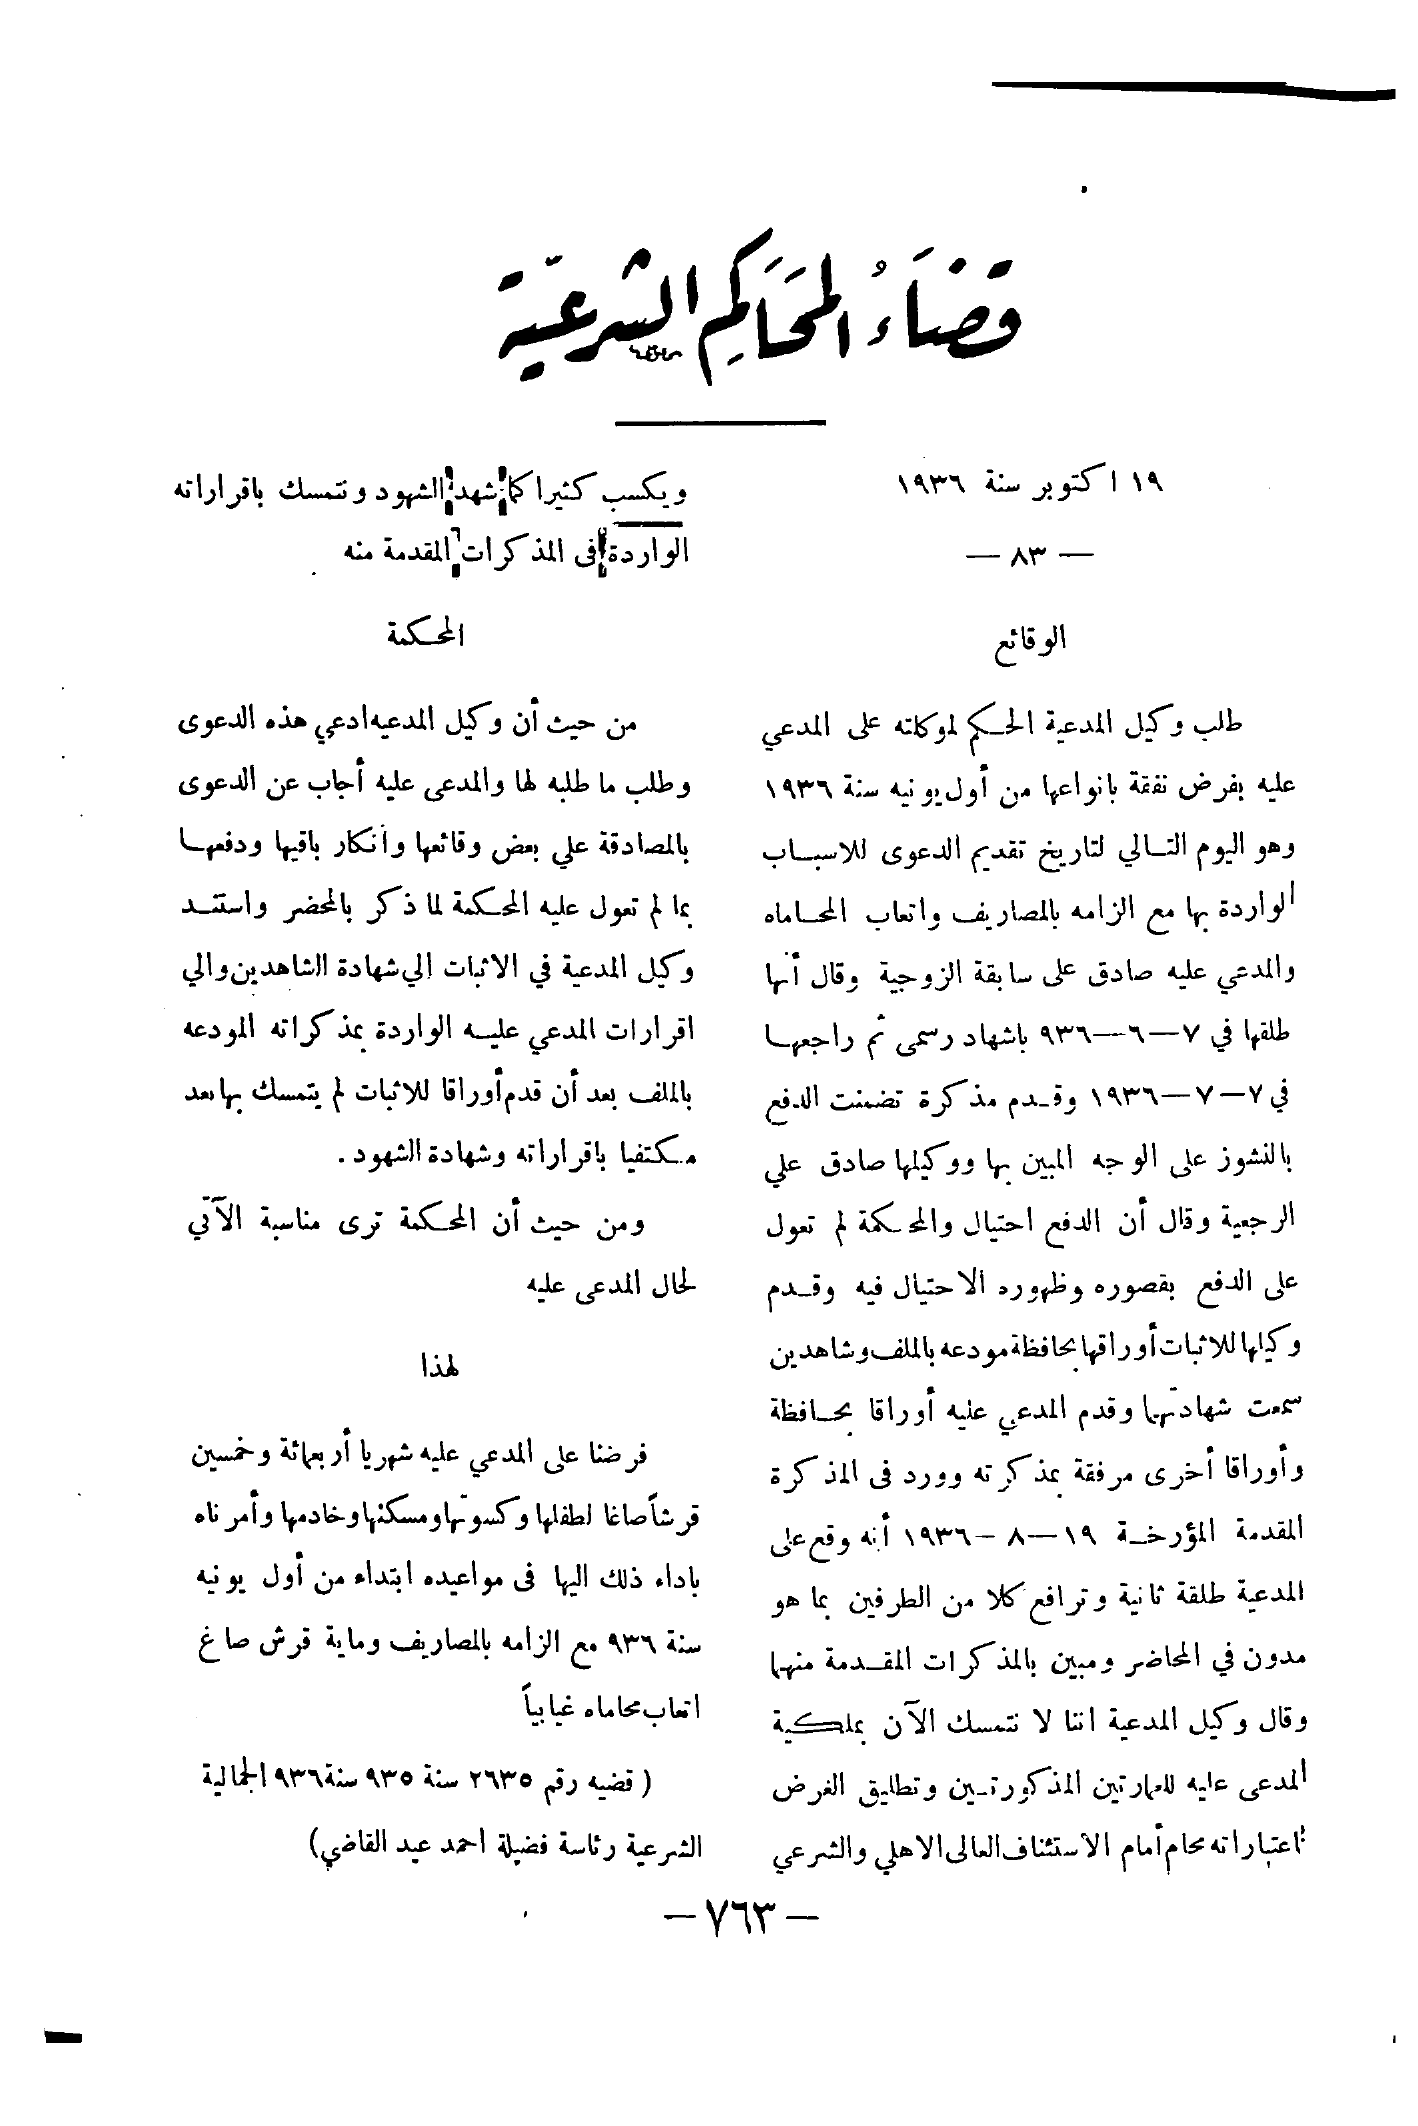 قضاء المحاكم الشرعية
١٩ اكتوبر سنة ١٩٣٦
— ٨٣ —
الوقائع
طلب وكيل المدعية الحكم لموكلته على المدعي
عليه بفرض نفقة بانواعها من أول يونيه سنة ١٩٣٦
وهو اليوم التالي لتاريخ تقديم الدعوى للاسباب
الواردة بها مع الزامه بالمصاريف واتعاب المحاماه
والمدعي عليه صادق على سابقة الزوجية وقال أنها
طلقها في ٧—٦—٩٣٦ باشهاد رسمى ثم راجعها
في ٧—٧—١٩٣٦ وقدم مذكرة تضمنت الدفع
بالنشوز على الوجه المبين بها ووكيلها صادق علي
الرجعية وقال أن الدفع احتيال والمحكمة لم تعول
على الدفع بقصوره وظهوره الاحتيال فيه وقدم
وكيلها للاثبات أوراقها بحافظة مودعه بالملف وشاهدين
سمعت شهادتهما وقدم المدعي عليه أوراقا بحافظة
وأوراقا أخرى مرفقة بمذكرته وورد فى المذكرة
المقدمة المؤرخة ١٩—٨—١٩٣٦ أنه وقع على
المدعية طلقة ثانية وترافع كلا من الطرفين بما هو
مدون في المحاضر ومبين بالمذكرات المقدمة منهما
وقال وكيل المدعية اننا لا نتمسك الآن بملكية
المدعى عليه للعمارتين المذكورتين وتطليق الغرض
باعتباراته محام أمام الاستئناف العالى الاهلي والشرعي
ويكسب كثيرا كما شهد الشهود ونتمسك باقراراته
الواردة فى المذكرات المقدمة منه
المحكمة
من حيث أن وكيل المدعيه ادعي هذه الدعوى
وطلب ما طلبه لها والمدعى عليه أجاب عن الدعوى
بالمصادقة علي بعض وقائعها وأنكار باقيها ودفعها
بما لم تعول عليه المحكمة لما ذكر بالمحضر واستند
وكيل المدعية في الاثبات إلي شهادة الشاهدين والي
اقرارات المدعي عليه الواردة بمذكراته المودعه
بالملف بعد أن قدم أوراقا للاثبات لم يتمسك بها بعد
مكتفيا باقراراته وشهادة الشهود .
ومن حيث أن المحكمة ترى مناسبة الآتي
لحال المدعى عليه
لهذا
فرضنا على المدعي عليه شهريا أربعمائة وخمسين
قرشاً صاغا لطفلها وكسوتها ومسكنها وخادمها وأمرناه
باداء ذلك اليها فى مواعيده ابتداء من أول يونيه
سنة ٩٣٦ مع الزامه بالمصاريف وماية قرش صاغ
اتعاب محاماه غيابياً
( قضيه رقم ٢٦٣٥ سنة ٩٣٥ سنة ٩٣٦ الجمالية
الشرعية رئاسة فضيلة احمد عيد القاضي)
— ٧٦٣ —